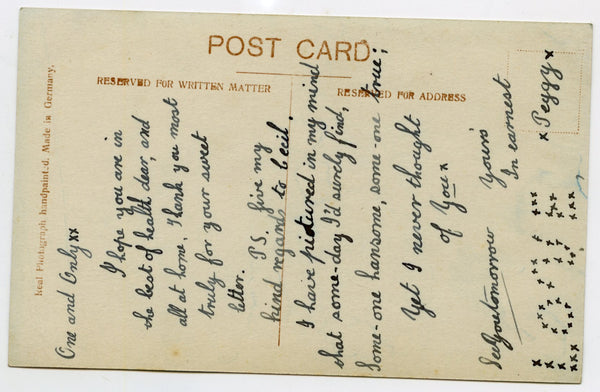 POST CARD
RESERVED FOR WRITTEN MATTER
RESERVED FOR ADDRESS
Real Photograph handpainted. Made in Germany.
One and Only xx
I hope you are in
the best of health dear, and
all at home, Thank you most
truly for your sweet
letter. P.S. give my
kind regards to Cecil.
I have pictured in my mind
that some-day I'd surely find,
Some-one hansome, some-one true;
Yet I never thought
of You x
See You tomorrow Yours'
In earnest
x Peggy x